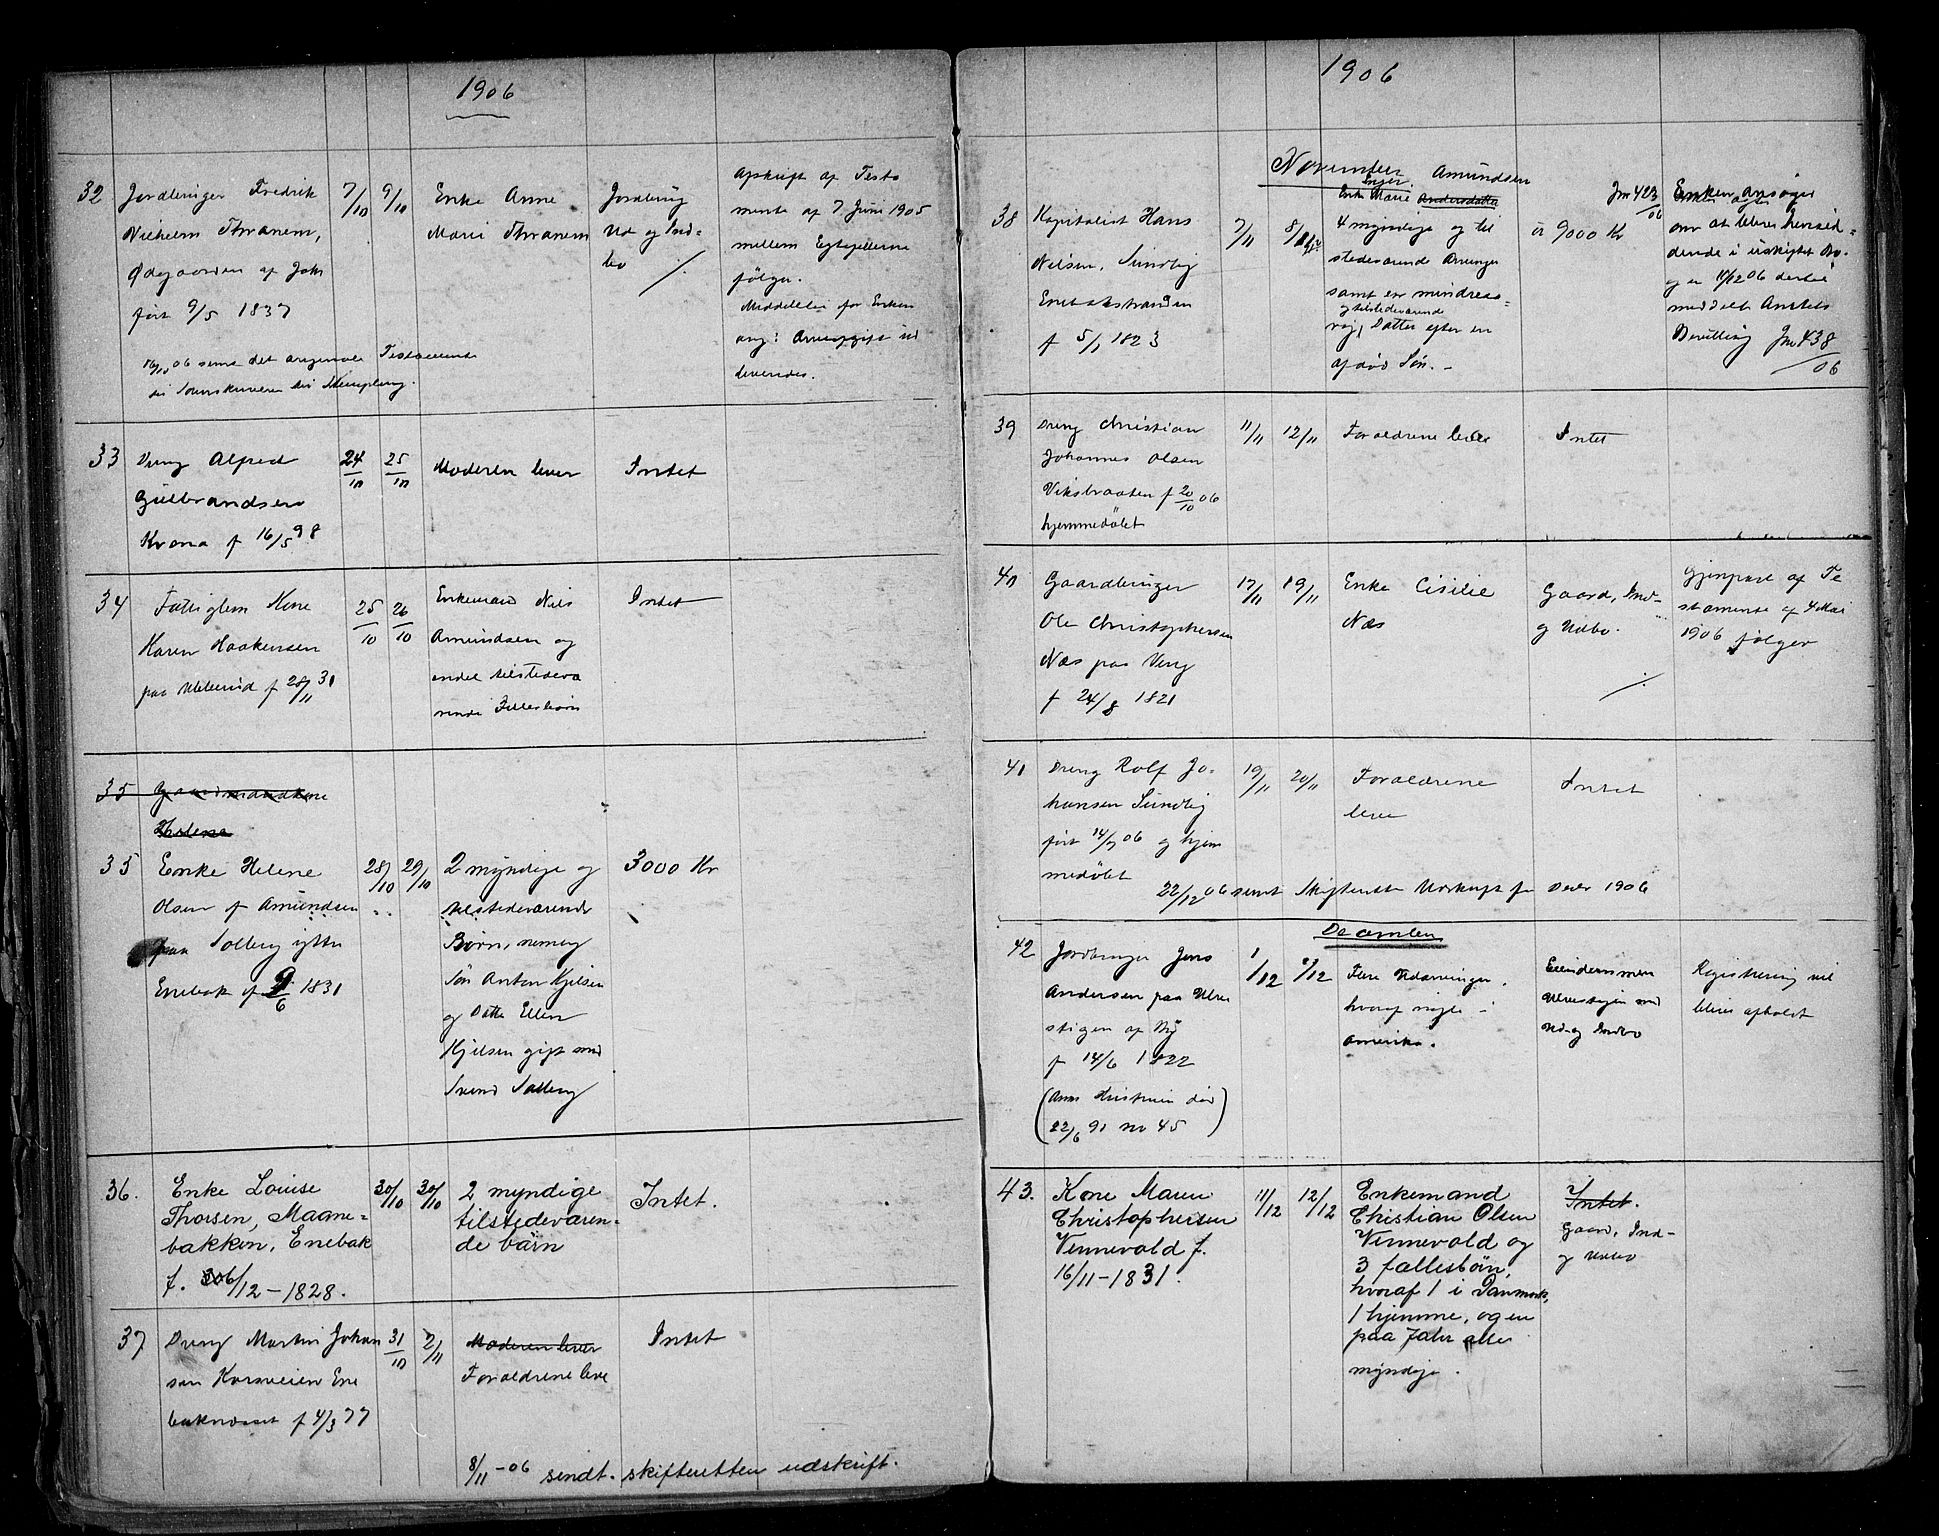 1906
32
Jordbruger Fredrik
Vilhelm Thranem,
Ødegaarden af Joh
født 9/5 1837
7/10
9/10
Enke Anne
Marie Thranem
Jordbrug
Ud og Ind-
bo
Afskrift af Testa
mente af 7 Juni 1905
mellem Egtefellerne
følger.
Meddelelse for Enken
ang: Arveafgift ud
leveredes.
16/10 06 sendt det originale Testamente
til Sorenskriveren til Stempling.
33
Dreng Alfred
Gulbrandsen
Krona f 16/5 98
24/10
25/10
Moderen lever
Intet
34
Fattiglem Kone
Karen Haakensen
paa f 28/11 31
25/10
26/10
Enkemand Nils
Amundsen og
endel tilstedevæ
rende Fællesbørn
Intet
35 Gaardmandkone
Helene
35
Enke Helene
Olsen f Amundsen
paa Solberg ytre
Enebak f 9/6 1831
28/10
29/10
2 myndige og
tilstedeværende
Børn, nemlig
Søn Anton Kjelsen
og Datter Ellen
Kjelsen gift med
Svend Solberg
3000 Kr
36.
Enke Louise
Thorsen, Maane=
bakken, Enebak
f. 6/12 - 1828.
30/10
30/10
2 myndige
tilstedeværen=
de børn
Intet.
37
Dreng Martin Johan
sen Korsveien Ene
baknæsset f 4/3 77
31/10
2/11
Moderen lever
Forældrene leve
Intet
8/11 - 06 sendt skifteretten udskrift.
1906
November
38
Kapitalist Hans
Nilsen, Sundby
Enebakstranden
f 5/1 1823
7/11
8/11
Amundsen
Enke Marie Andersdatter
4 myndige og til
stedeværende Arvinger
samt en mindreaa=
og tilstedeværende
rig, Datter efter en
afdød Søn.
9000 Kr
Jm 423/06
Enken ansøger
om at blive hensid=
dende i uskiftet Bo.
og er 11/12 06 dertil
meddelt Amtets
Bevilling Jm 438/06
39
Dreng Christian
Johannes Olsen
Viksbraaten f 20/10 06
hjemmedøbt
11/11
12/11
Forældrene lever
Intet
40
Gaardbruger
Ole Christophersen
Næs paa Veng
f 24/8 1821
17/11
19/11
Enke Cisilie
Næs
Gaard, Ind-
og Udbo.
Gjenpart af Te
stamente af 4 Mai
1906 følger
41
Dreng Rolf Jo-
hansen Sundby
født 14/9 06 og hjem
medøbt
19/11
20/11
Forældrene
leve
Intet
22/12 06 sendt Skifteretten Udskrift for Decbr 1906
December
42
Jordbruger Jens
Andersen paa Ulve
stigen af Ny
f 14/6 1822
(Anne Kristine død
22/6 91 no 45)
1/12
2/12
Flere Udarvinger,
hvoraf nogle i
Amerika.
Eiendommen
Ulvestigen med
Ud- og Indbo
Registrering vil
blive afholdt
43.
Kone Maren
Christophersen
Vennevold f.
16/11 - 1831.
11/12
12/12
Enkemand
Christian Olsen
Vennevold og
3 fællesbørn,
hvoraf 1 i Danmark,
1 hjemme, og en
paa Jaler alle
myndige.
Intet.
Gaard, Ind-
og Udbo